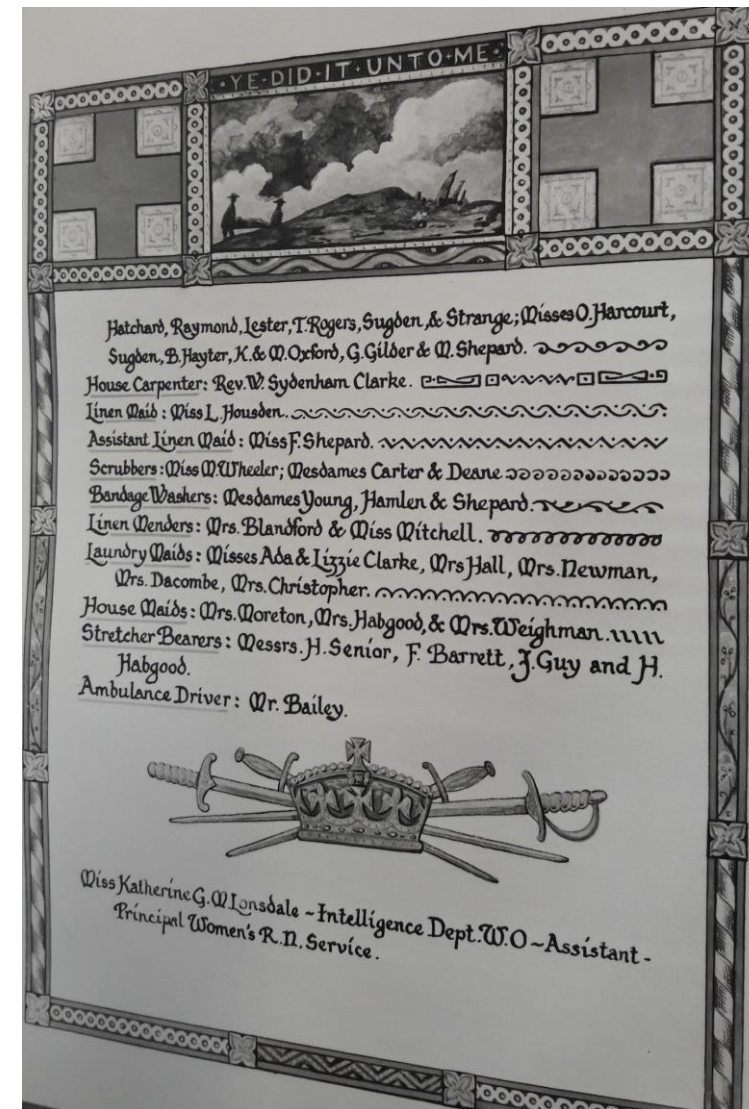 · YE · DID · IT · UNTO · ME ·
Hatchard, Raymond, Lester, T. Rogers, Sugden, & Strange; Misses O. Harcourt,
Sugden, B. Hayter, K. & M. Oxford, G. Gilder & M. Shepard.
House Carpenter: Rev. W. Sydenham Clarke.
Linen Maid: Miss L. Housden.
Assistant Linen Maid: Miss F. Shepard.
Scrubbers: Miss M Wheeler; Mesdames Carter & Deane
Bandage Washers: Mesdames Young, Hamlen & Shepard.
Linen Menders: Mrs. Blandford & Miss Mitchell.
Laundry Maids: Misses Ada & Lizzie Clarke, Mrs Hall, Mrs. Newman,
Mrs. Dacombe, Mrs. Christopher.
House Maids: Mrs. Moreton, Mrs. Habgood, & Mrs. Weighman.
Stretcher Bearers: Messrs. H. Senior, F. Barrett, J. Guy and H.
Habgood.
Ambulance Driver: Mr. Bailey.
Miss Katherine G. M Lonsdale ~ Intelligence Dept. W.O ~ Assistant -
Principal Women's R. N. Service.